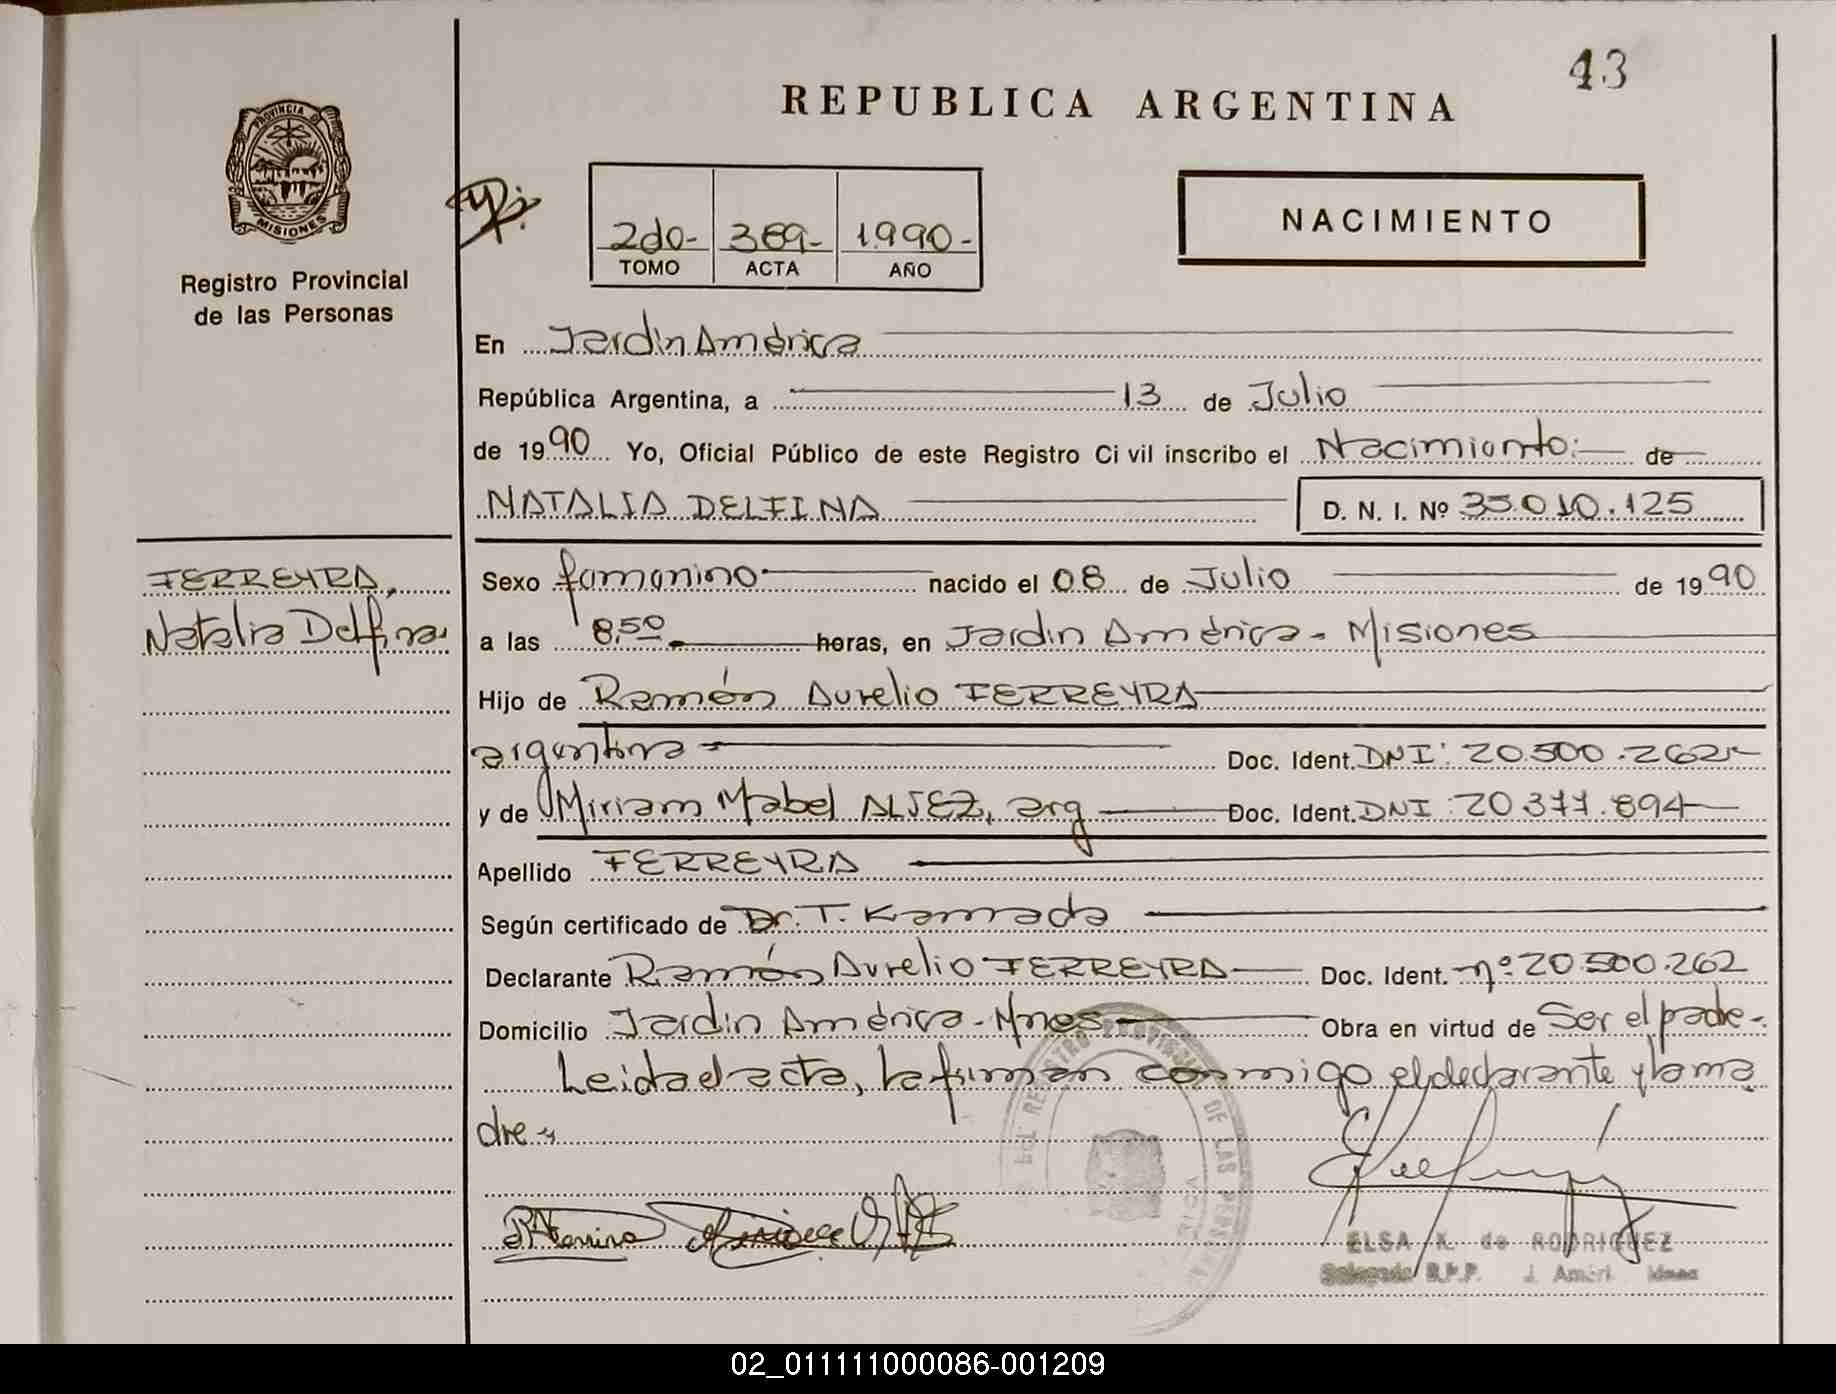 43
REPUBLICA ARGENTINA
PROVINCIA DE
MISIONES
Registro Provincial
de las Personas
2do- 389- 1.990-
TOMO ACTA AÑO
NACIMIENTO
En Jardín América
República Argentina, a 13 de Julio
de 1990 Yo, Oficial Público de este Registro Civil inscribo el Nacimiento: de
NATALIA DELFINA D. N. I. Nº 35.010.125
FERREYRA,
Natalia Delfina
Sexo femenino nacido el 08 de Julio de 1990
a las 8,50 horas, en Jardín América - Misiones
Hijo de Ramón Aurelio FERREYRA
argentina Doc. Ident. DNI: 20.500.262-
y de Miriam Mabel ALSEZ, arg Doc. Ident. DNI: 20.377.894
Apellido FERREYRA
Según certificado de Dr. T. Kamada
Declarante Ramón Aurelio FERREYRA Doc. Ident. nº 20.500.262
Domicilio Jardín América - Mnes Obra en virtud de Ser el padre-
Leida el acta, la firman conmigo el declarante y la ma
dre
DEL REGISTRO PROVINCIAL DE LAS PERSONAS
ELSA K. de RODRIGUEZ
Delegada R.P.P. J. Améri. Mnes
02_011111000086-001209